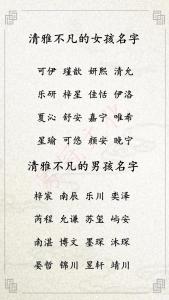 清雅不凡的女孩名字
可伊 瑾歆 妍熙 清允
乐研 梓星 佳恬 伊洛
夏沁 舒安 嘉宁 唯希
星瑜 可悠 颜安 晚宁
清雅不凡的男孩名字
梓宸 南辰 乐川 奕泽
芮程 允谦 苏玺 屿安
南湛 博文 墨琛 沐琛
晏哲 锦川 昱轩 靖川